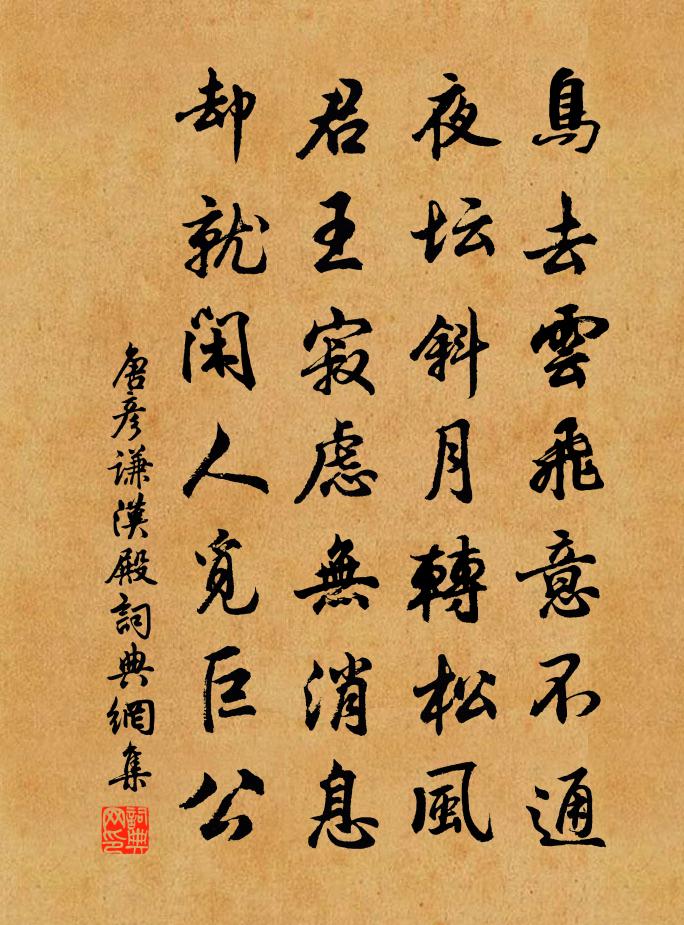 鳥去雲飛意不通
夜坛斜月轉松風
君王寂慮無消息
却就閑人覓巨公
唐彦謙漢殿詞典網集
詞典网印